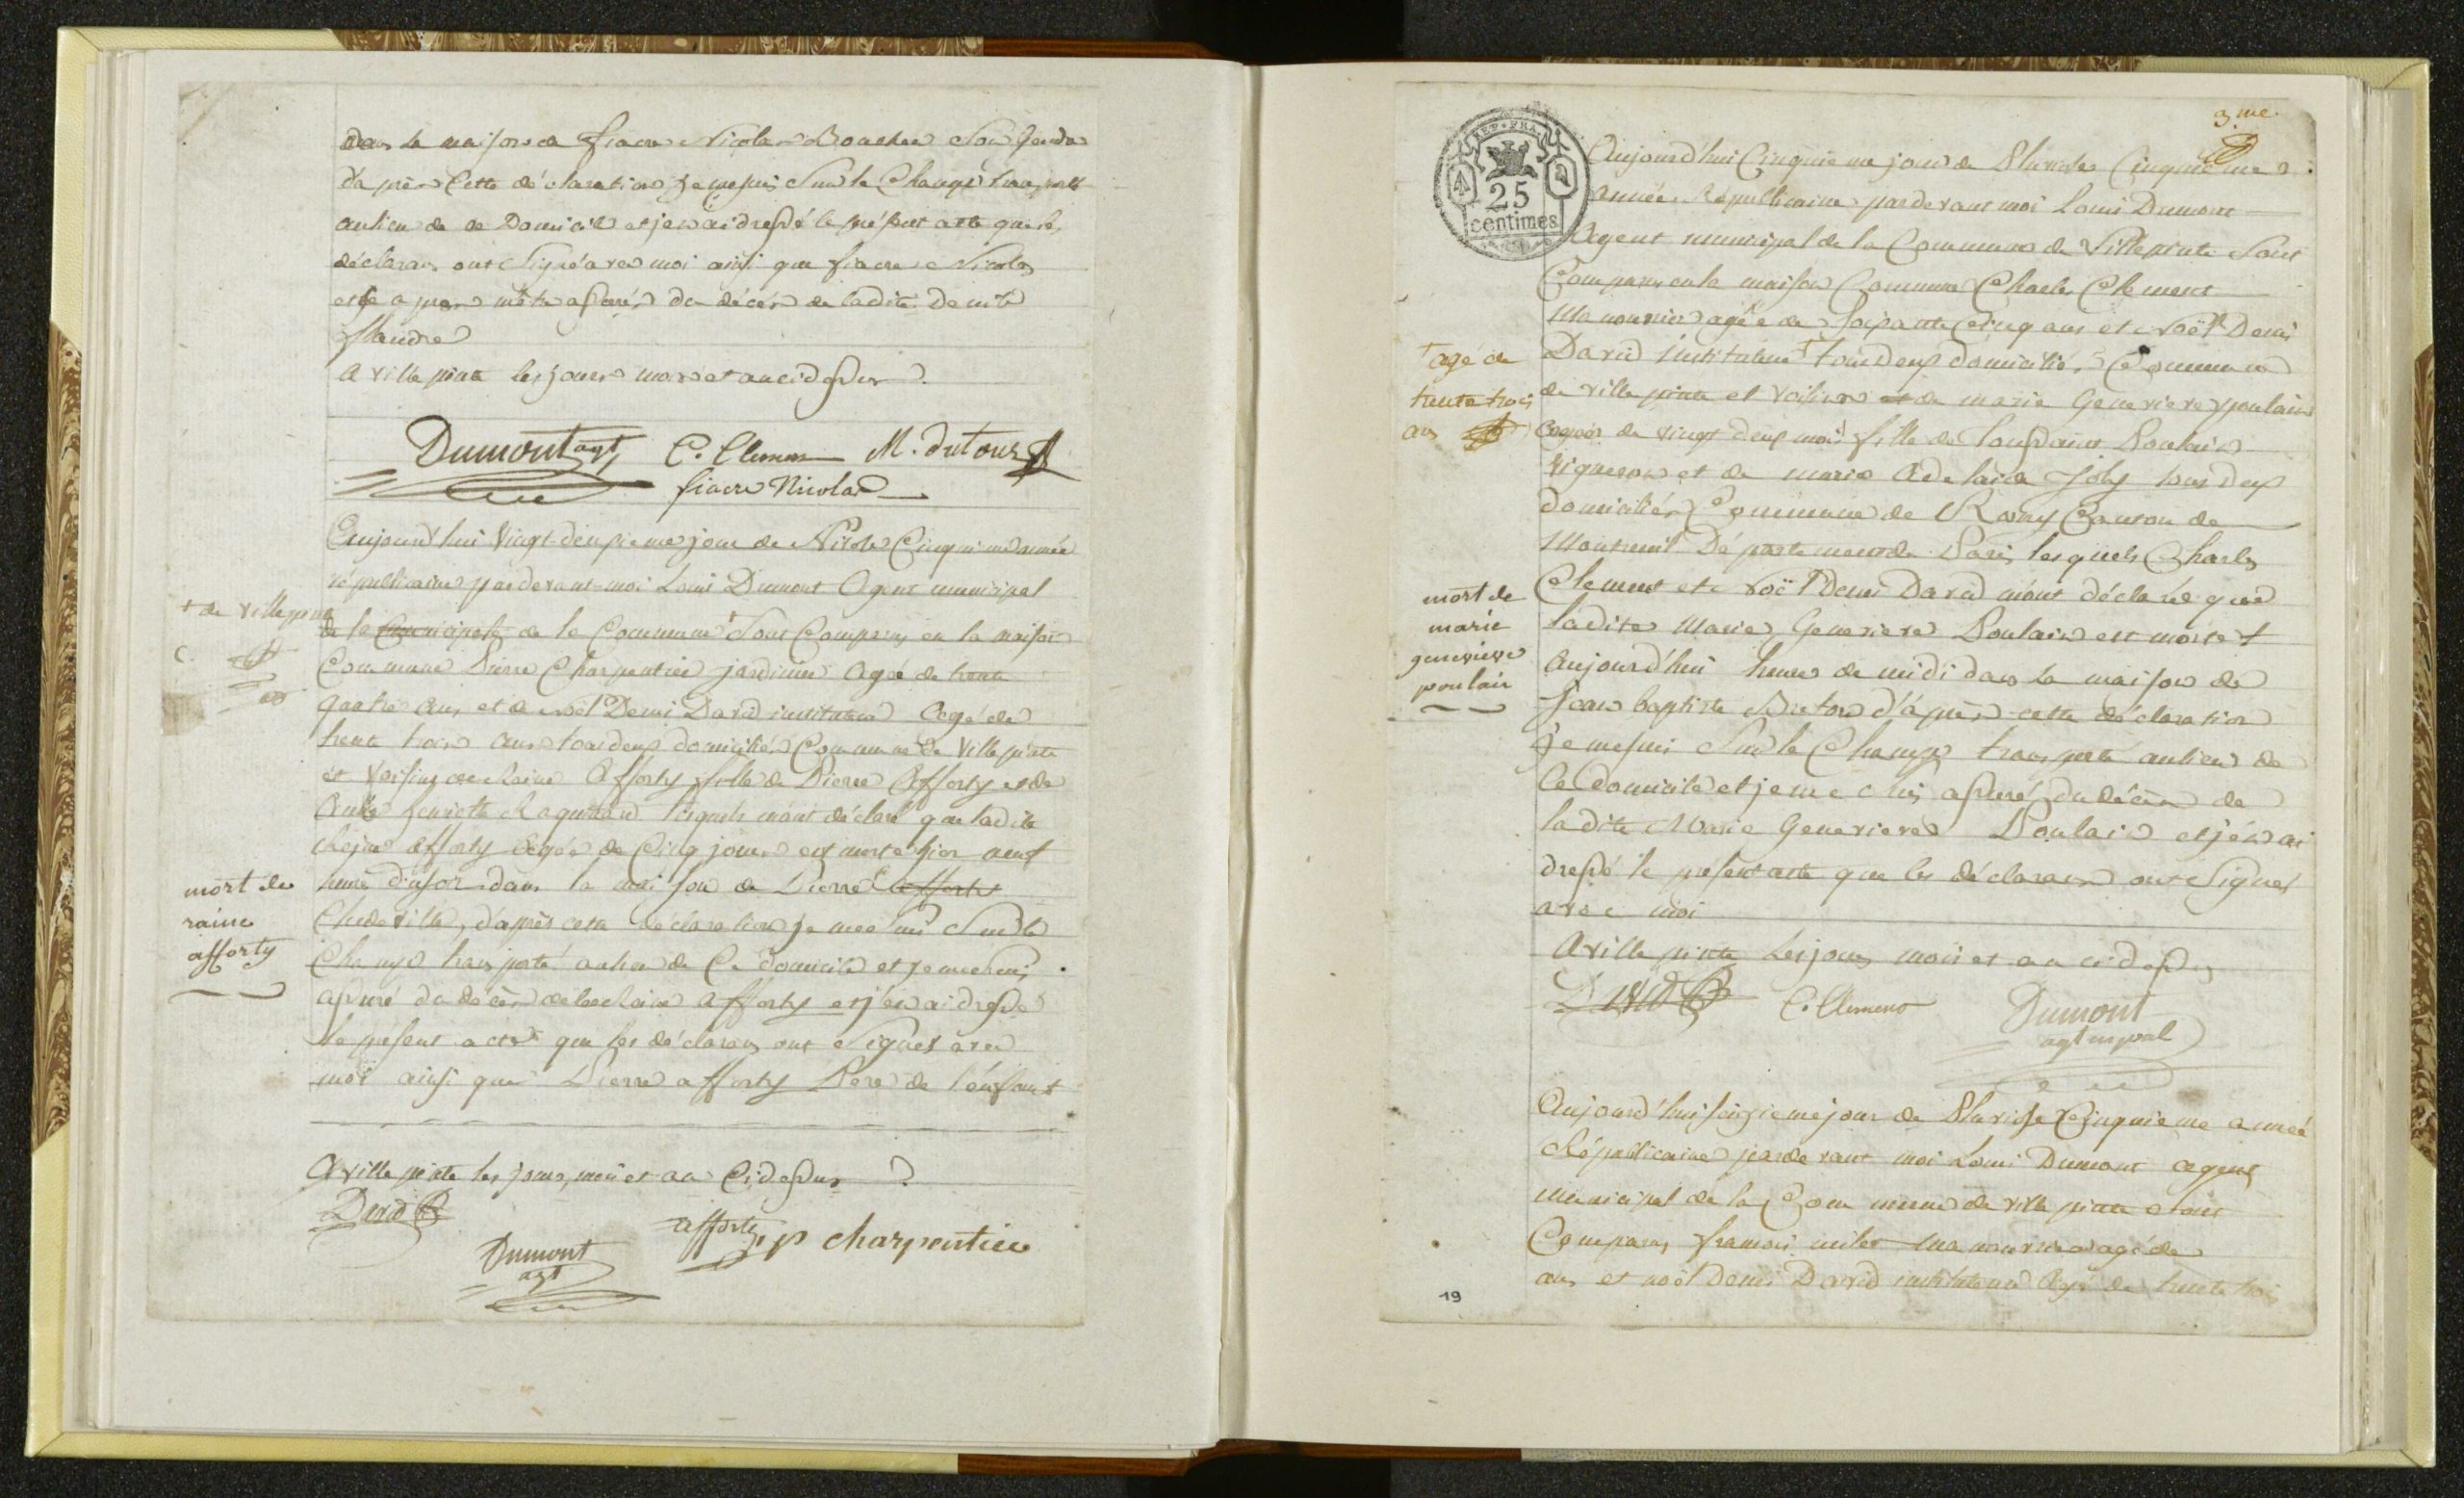 dans la maison de fiacre Nicolas Boucher son gendre
d'après cette déclaration je me suis sur le champs transporté
au lieu de ce Domicile et j'en ai dressé le présent acte que les
déclarans ont signé avec moi ainsi que fiacre Nicolas
du décès de ladite
flandre
a ville pinte les jours mois et an cidessus
Dumont agt C. Clement M. dutour
fiacre Nicolas
Aujourd'hui vingt deuxieme jour de Nivose Cinquieme année
républicaine pardevant moi Louis Dumont Agent municipal
+ de villepinte
de la municipale de la Commune + sont Comparus en la maison
Commune Pierre Charpentier jardinier agé de trente
quatre ans et de noël Denis David instituteur agé de
trente trois ans tous deux domiciliés Commune de Villepinte
et voisins de Reine Afforty fille de Pierre Afforty et de
henriette lesquels m'ont déclaré que ladite
Reine afforty agée de cinq jours est morte hier neuf
mort de
raine
afforty
heure du soir dans la maison de Pierre afforty
d'après cette déclaration je me suis sur le
Champs transporté au lieu de Ce domicile et je me suis
assuré du décès de la Reine afforty et j'en ai dressé
le présent acte que les déclarans ont signés avec
moi ainsi que Pierre afforty Pere de l'enfant
A ville pinte les jours, mois et an Cidessus
David
afforty p charpentier
Dumont
agt
3.me
REP. FRA.
25
centimes
Aujourd'hui Cinquieme jour de Pluviose Cinquieme
année Républicaine pardevant moi Louis Dumont
Agent municipal de la Commune de Villepinte Sont
Comparus en la maison Commune Charles Clement
Manouvrier agé de soixante Cinq ans et Noël Denis
+ agé de
trente trois
ans
David instituteur + tous deux domiciliés Commune
de ville pinte et voisins et de marie Genevieve poulain
agée de vingt deux mois fille de toussaint Poulain
Vigneron et de marie Adelaide Joly tous deux
domiciliés Commune de Rosny Canton de
Montreuil Département de Paris lesquels Charles
mort de
marie
genevieve
poulain
Clement et Noël Denis David m'ont déclaré que
ladite Marie Genevieve Poulain est morte
Aujourd'hui heure de midi dans la maison de
Jean baptiste Breton d'après cette déclaration
je me suis sur le Champs transporté au lieu de
Ce domicile et je me suis assuré du décès de
ladite Marie Genevieve Poulain et j'en ai
dressé le présent acte que les déclarans ont signés
avec moi
A ville pinte les jours mois et an cidessus
David C. Clement Dumont
agt mpal
Aujourd'hui seizieme jour de Pluviose Cinquieme année
Républicaine pardevant moi Louis Dumont agent
municipal de la Commune de ville pinte sont
Comparus francois milet manouvrier agé de
ans et noël Denis David instituteur agé de trente trois
19